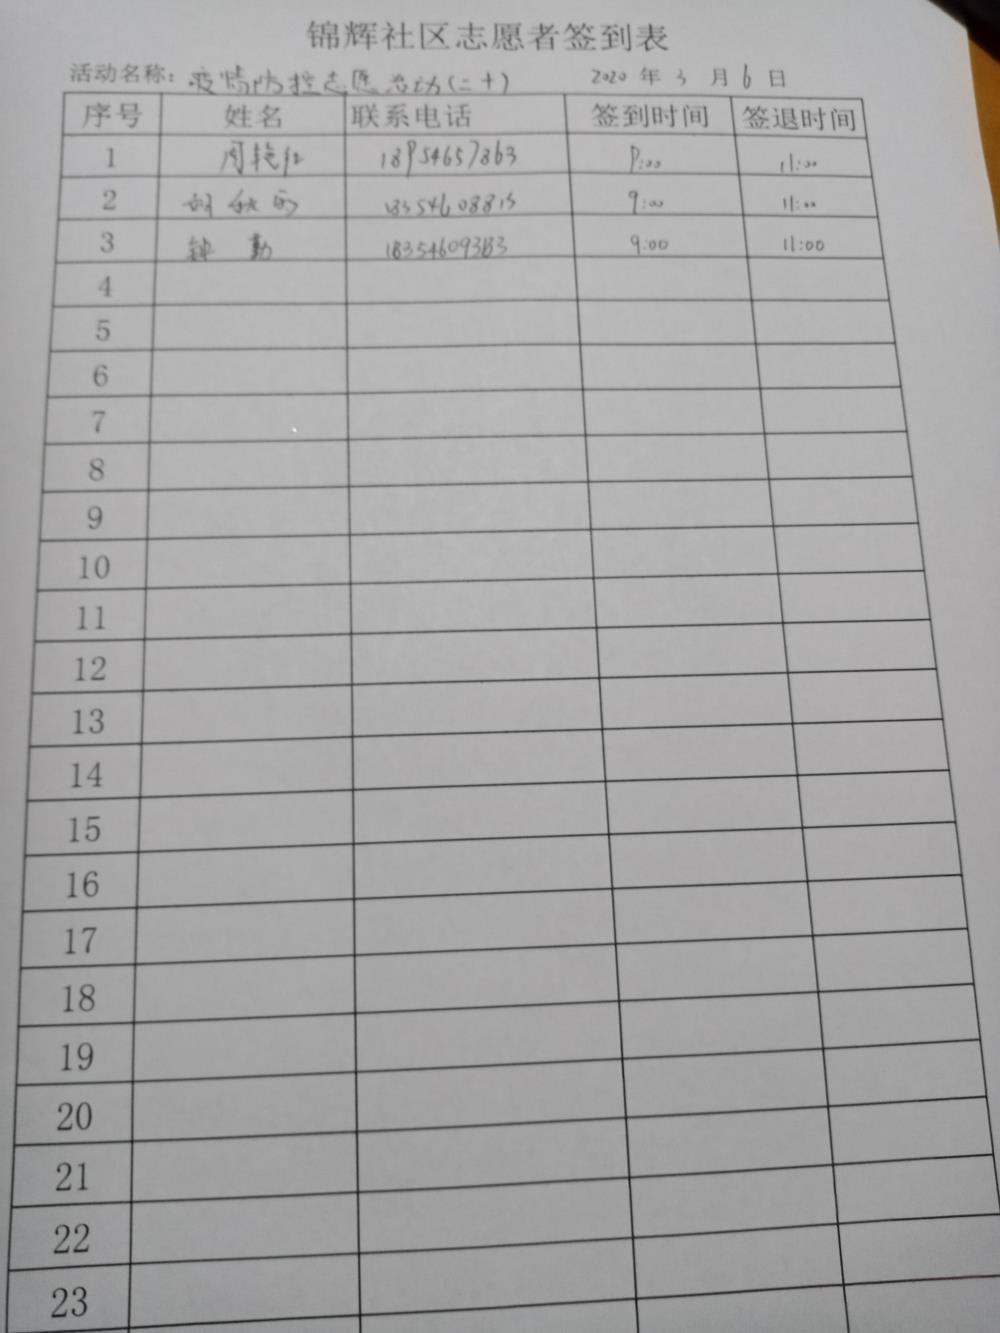 锦辉社区志愿者签到表
活动名称: 疫情防控志愿活动(二十) 2020 年 3 月 6 日
序号 姓名 联系电话 签到时间 签退时间
1 周艳红 18954657863 9:00 11:00
2 胡秋 18354608815 9:00 11:00
3 钟勤 18354609383 9:00 11:00
4
5
6
7
8
9
10
11
12
13
14
15
16
17
18
19
20
21
22
23